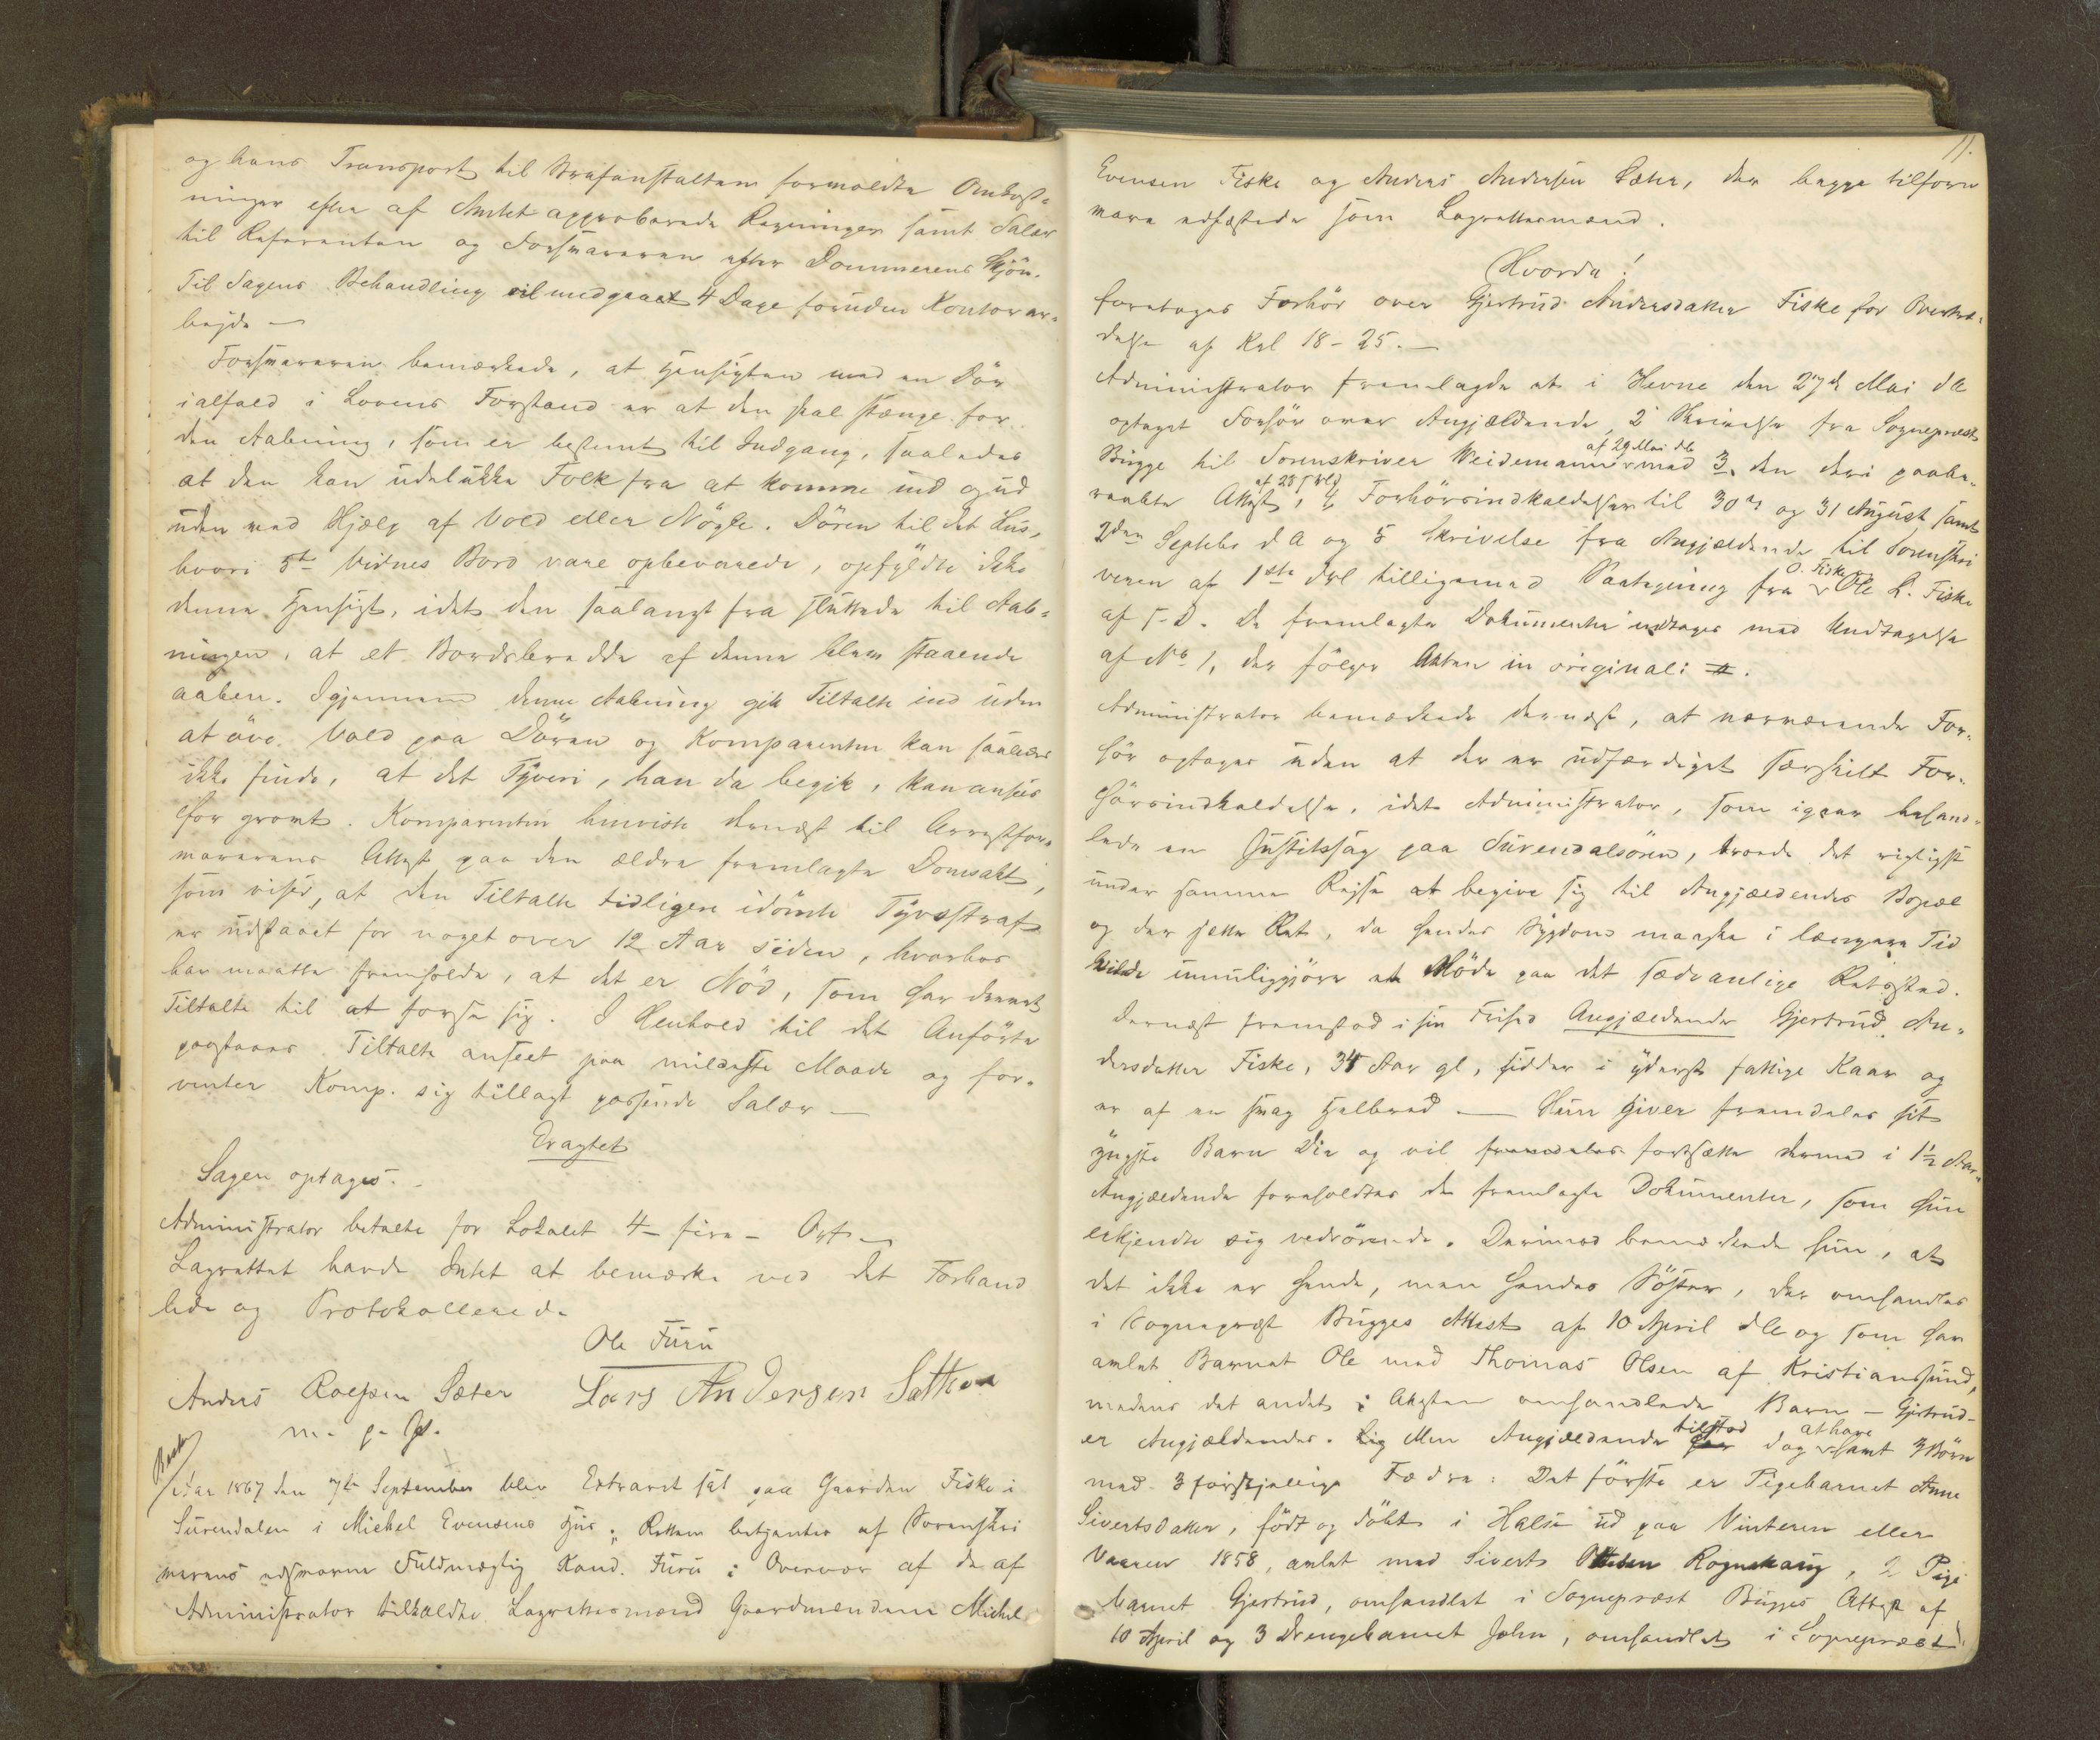 og hans Transport til Strafanstalten formeldte Omkost-
ninger efter af Amtet approberede Regninger samt Salær
til Referenten og Forsvareren efter Dommerens Skjön.
Til Sagens Behandling vil medgaaet 4 Dage foruden Kontorar-
bejde —
Forsvareren bemærkede, at Hensigten med en Dör
ialfald i Lovens Forstand er at den skal stænge for
den Aabning, som er bestemt til Indgang, saaledes
at den kan udelukke Folk fra at komme ind og ud
uden med Hjælp af Vold eller Nögle. Dören til det Hus,
hvori 5te Vidnes Bord vare opbevarede, opfyldte ikke
denne Hensigt, idet den saalangt fra sluttede til Aab-
ningen, at et Bordsbredde af denne blev staaende
aaben. Igjennem denne Aabning gik Tiltalte ind uden
at öve Vold paa Dören og Komparenten kan saaledes
ikke finde, at det Tyveri, han da begik, kan ansees
for grovt. Komparenten henviste dernæst til Arrestfor-
varerens Attest paa den ældre fremlagte Domsakt,
som viser, at den Tiltalte tidligere idömte Tyvsstraf
er udstaaet for noget over 12 Aar siden, hvorhos
han maatte fremholde, at det er Nöd, som har drevet
Tiltalte til at forse sig. I Henhold til det Anförte
paastaaes Tiltalte anseet paa mildeste Maade og for-
venter Komp. sig tillagt passende Salær —
Eragtet
Sagen optages.
Administrator betalte for Lokalet 4 - fire - Ort
Lagrettet havde Intet at bemærke ved det Forhand
lede og Protokollerede
Ole Furu
Anders Roelsen Sæter Lars Andersen Sætter
m. p. P.
Aar 1867 den 7de September blev Extraret sat paa Gaarden Fiske i
Surendalen i Mickel Evensens Hus. Retten betjentes af Sorenskri
verens edsvorne Fuldmægtig Kand. Furu i Overvær af de af
Administrator tilkaldte Lagrettesmænd Gaardmændene Mickel
11.
Evensen Fiske og Anders Andersen Sæter, der begge tilforn
vare edfæstede som Lagrettesmænd.
Hvorda!
foretoges Forhör over Gjertrud Andersdatter Fiske for Overtræ-
delse af Krl 18-25. —
Administrator fremlagde et i Hevne den 27de Mai d A
optaget Forhör over Angjældende, 2 Skrivelse fra Sogneprest
Bugge til Sorenskriver Weidemann af 29 Mai ds med 3, den deri paabe-
raabte Attest, 4 Forhörsindkaldelser til 30te og 31 August samt
2den Septebr d A og 5 Skrivelse fra Angjældende til Sorenskri
veren af 1ste ds tilligemed Paategning fra O. Fiske Ole L. Fiske
af s. D. De fremlagte Dokumenter indtages med Undtagelse
af No 1, der fölger Akten in originali.
Administrator bemærkede dernæst, at nærværende For-
hör optages uden at der er udfærdiget særskilt For-
hörsindkaldelse, idet Administrator, som igaar behand-
lede en Justitssag paa Surendalsören, troede det rigtigst
under samme Rejse at begive sig til Angjældendes Bopæl
og der sætte Ret, da hendes Sygdom maaske i længere Tid
vilde umuliggjöre at Möde paa det sædvanlige Retssted.
Dernæst fremstod i sin Frihed Angjældende Gjertrud An-
dersdatter Fiske, 34 Aar gl, sidder i yderst fattige Kaar og
er af en svag Helbred — Hun giver fremdeles sit
yngste Barn Die og vil fremdeles fortsætte dermed i 1½ Aar.
Angjældende foreholdtes de fremlagte Dokumenter, som hun
erkjendte sig vedrörende. Derimod bemærkede hun, at
det ikke er hende, men hendes Söster, der omhandles
i Sogneprest Bugges Attest af 10 April dA og som har
avlet Barnet Ole med Thomas Olsen af Kristianssund,
medens det andet i Attesten omhandlede Barn - Gjertrud -
er Angjældendes. Men Angjældende tilstod dog at have havt 3 Börn
med 3 forskjellige Fædre: Det förste er Pigebarnet Anne
Sivertsdatter, födt og döbt i Halse ud paa Vinteren eller
Vaaren 1858, avlet med Sivert Ottesen Rognskaug, 2 Pige
barnet Gjertrud, omhandlet i Sogneprest Bugges Attest af
10 April og 3 Drengebarnet John, omhandlet i Sogneprest